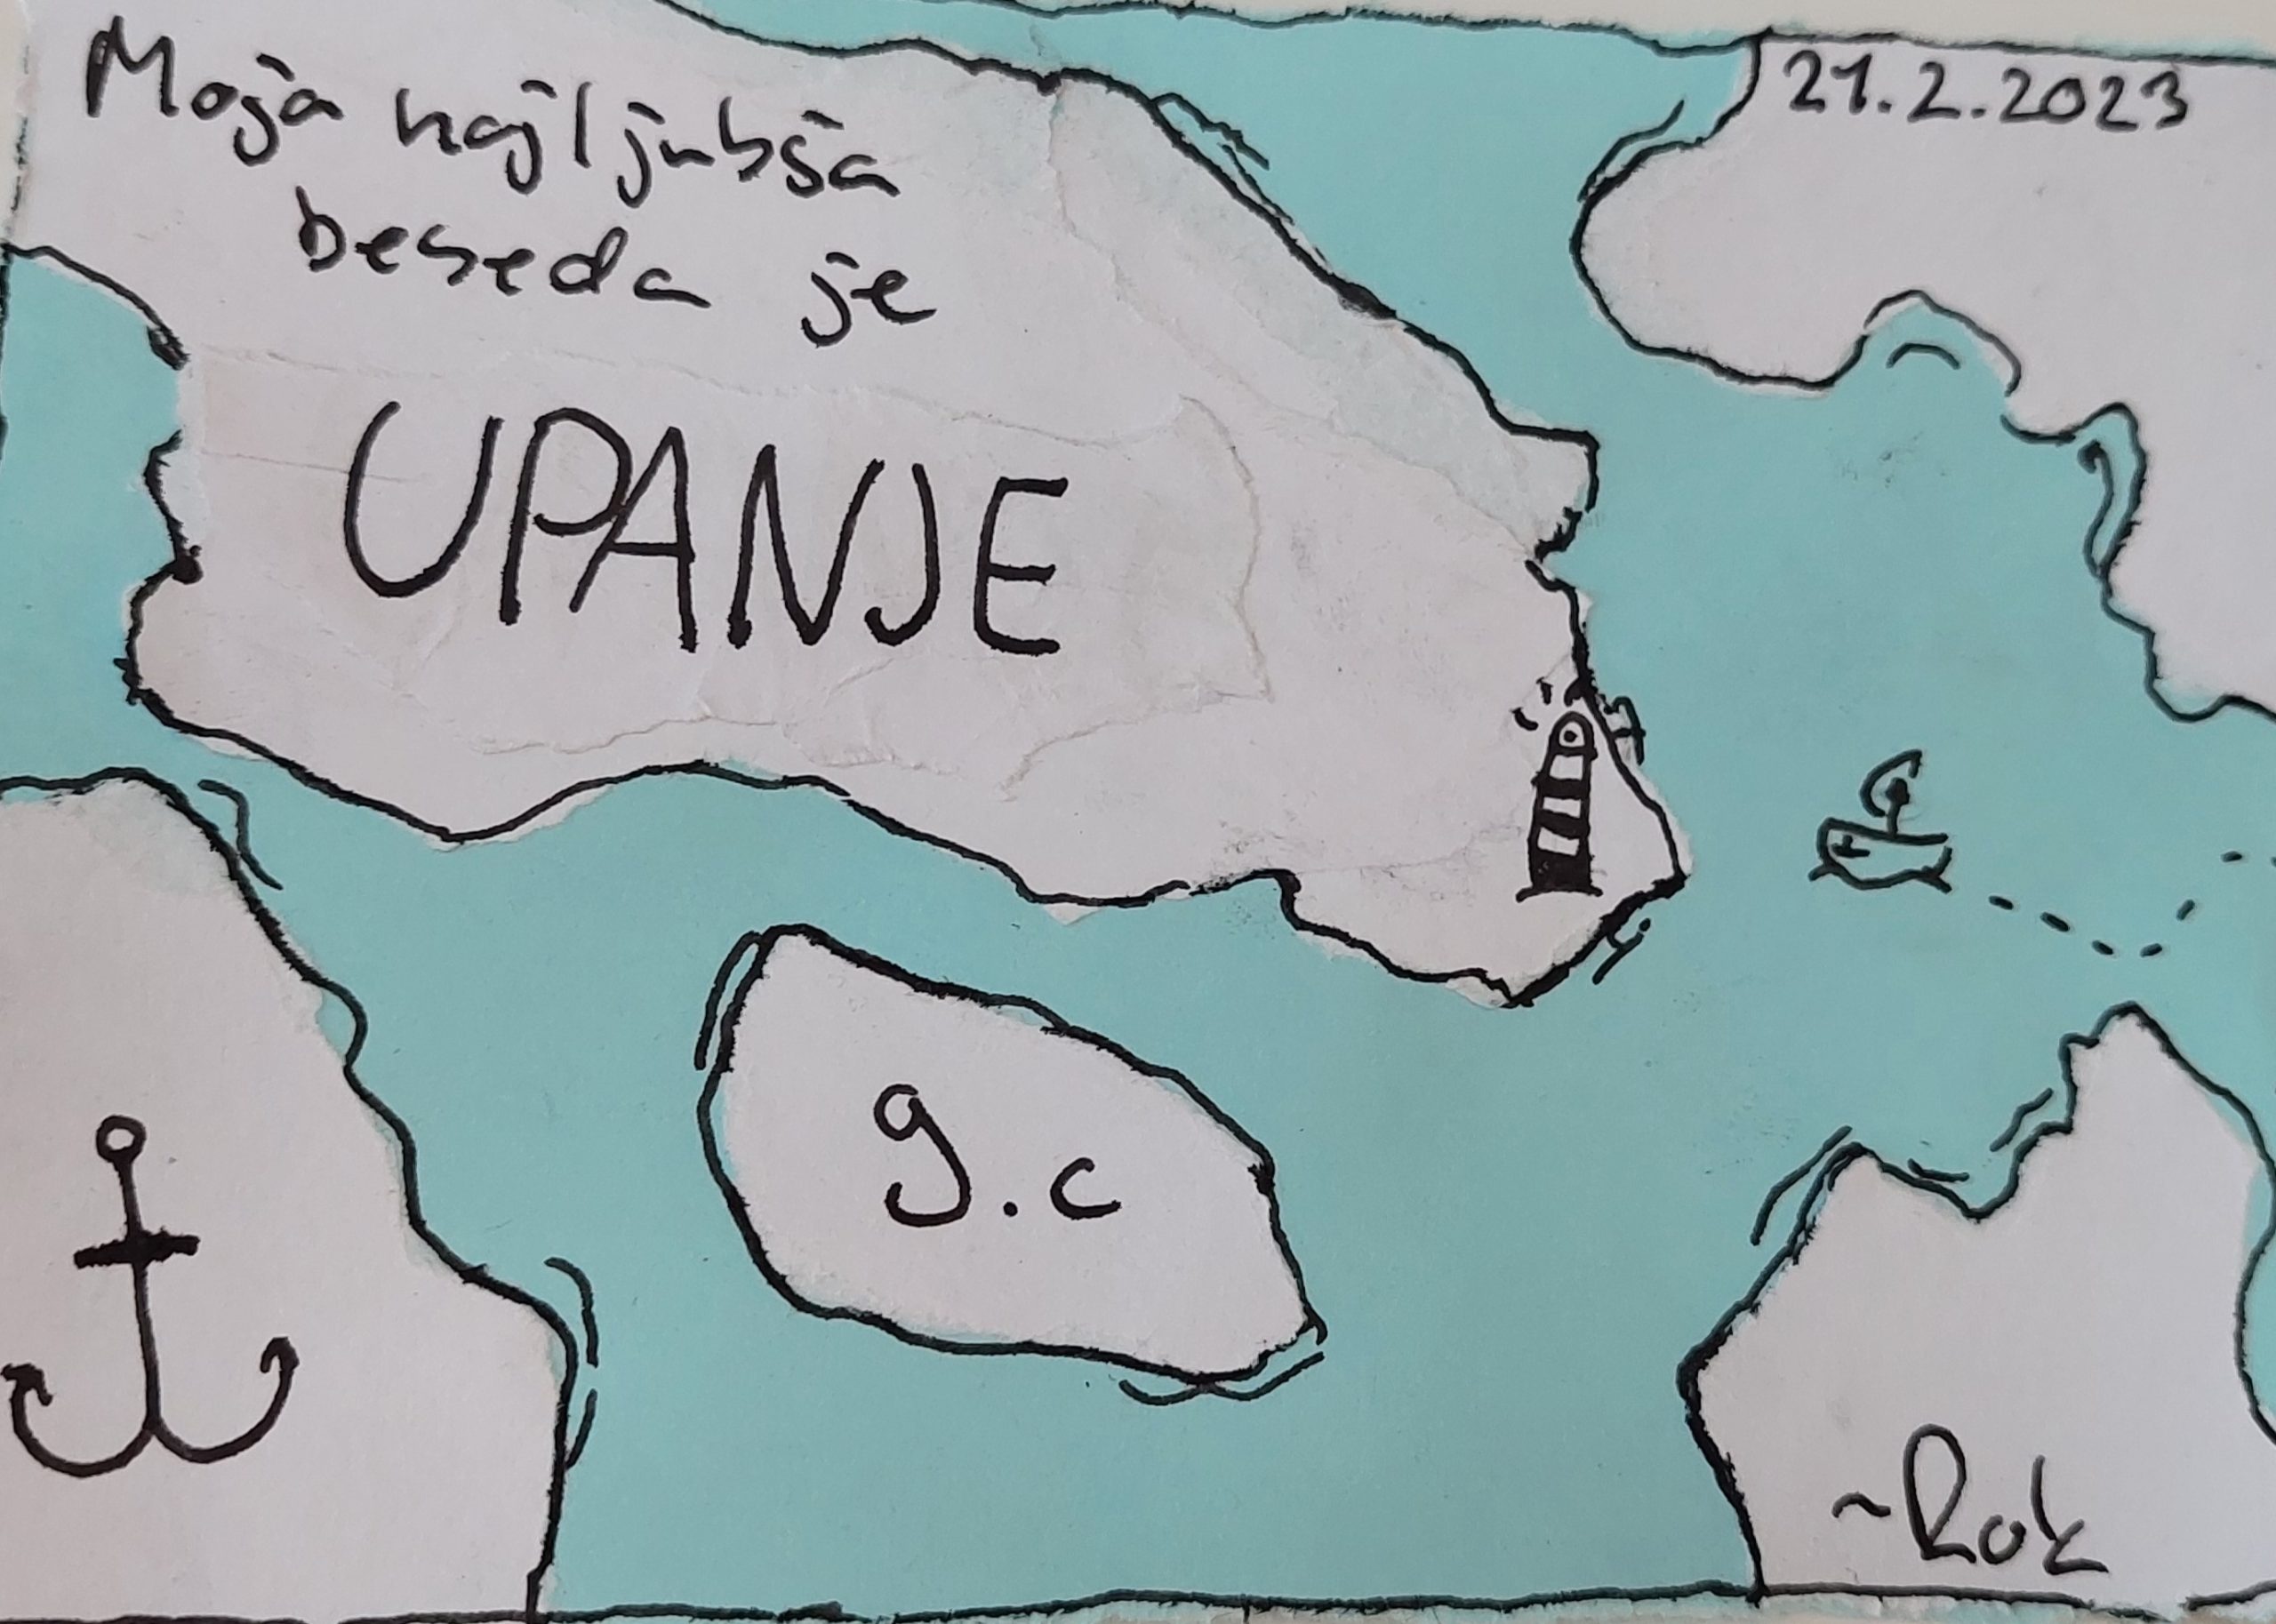 Moja najljubša
beseda je
UPANJE
21.2.2023
9.c
~Rok